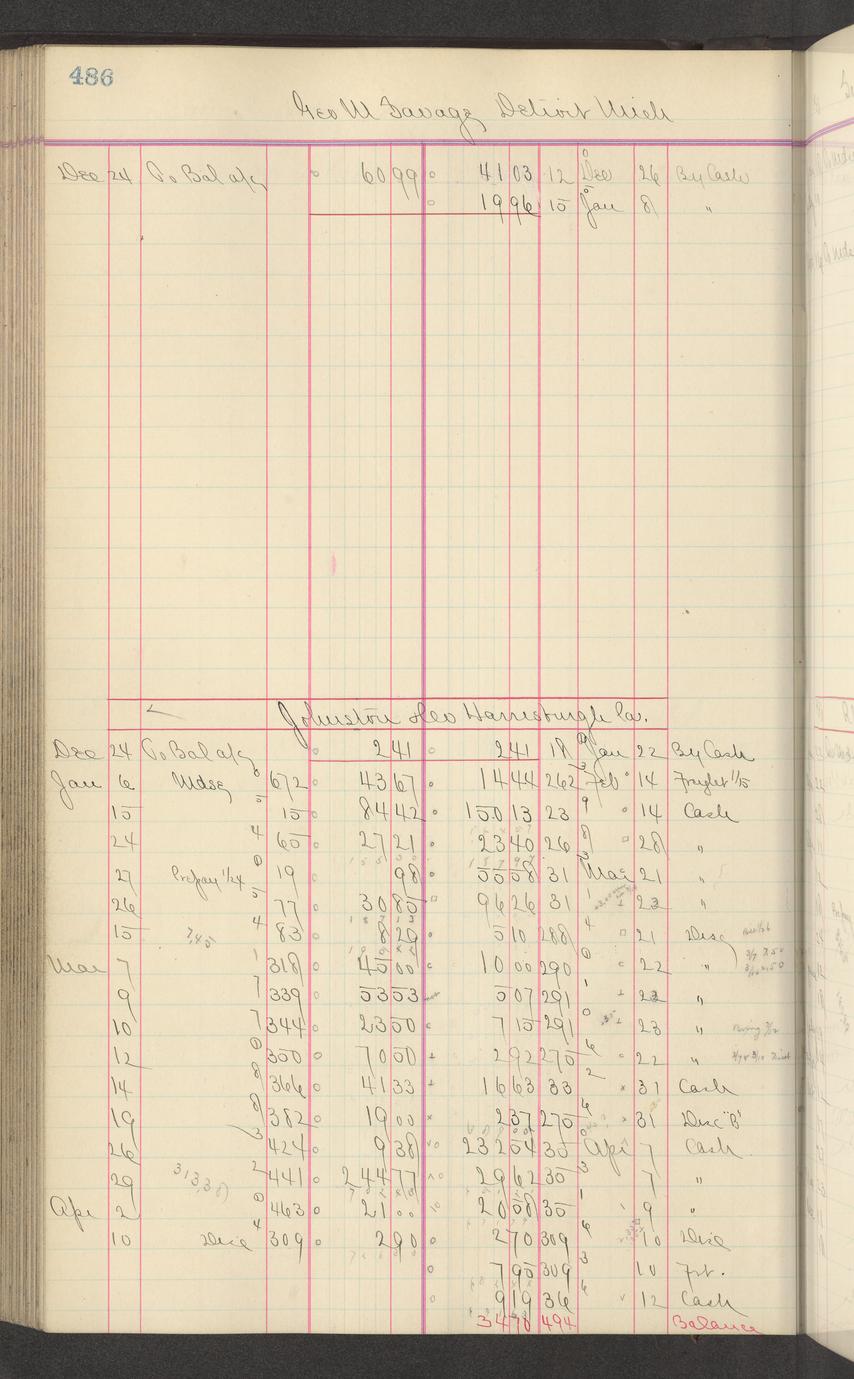 486
Geo M Savage Detroit Mich
Dec 24 To Bal a/c 60 99 41 03 12 Dec 26 By Cash
19 96 15 Jan 8 "
Johnston Geo Harrisburgh Pa.
Dec 24 To Bal a/c 2 41 2 41 18 Jan 22 By Cash
Jan 6 Mdse 672 43 67 14 44 262 Feb 14 Freight 1/15
15 15 84 42 150 13 23 14 Cash
24 65 27 21 23 40 26 28 "
27 Prepay 1/24 19 98 55 58 31 Mar 21 "
26 77 30 85 96 26 31 23 "
15 83 8 29 5 10 288 21 Disc
Mar 7 318 45 00 10 00 290 22 "
9 339 53 53 5 07 291 22 "
10 344 23 50 7 15 291 23 "
12 350 70 50 2 92 275 22 "
14 366 41 33 16 63 33 31 Cash
19 382 19 00 2 37 275 31 Disc "B"
26 424 9 38 232 54 35 Apr 7 Cash
29 313,38 441 244 77 29 62 35 7 "
Apr 2 463 21 00 20 58 35 9 "
10 Disc 309 2 90 2 70 309 10 Disc
7 95 309 10 Frt.
9 19 36 12 Cash
34 70 494 Balance